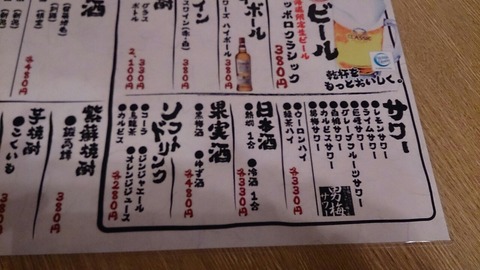 ビール
海道限定生ビール
ッポロクラシック
380円
乾杯を
もっとおいしく。
CLASSIC
ボール
ワーズ ハイボール
380円
イン
グラス 330円
ボトル 2,100円
酒
480円
サワー
●レモンサワー
●ライムサワー
●巨峰サワー
●グレープフルーツサワー
●白桃サワー
●カルピスサワー
●男梅サワー
各330円
男梅
サワー
●ウーロンハイ
●緑茶ハイ
各330円
日本酒
●熱燗 1合
●冷酒 1合
各330円
果実酒
●黒梅酒
●ゆず酒
各480円
ソフトドリンク
●コーラ
●ジンジャエール
●烏龍茶
●オレンジジュース
●カルピス
各280円
紫蘇焼酎
●鍛高譚
芋焼酎
●こくいも